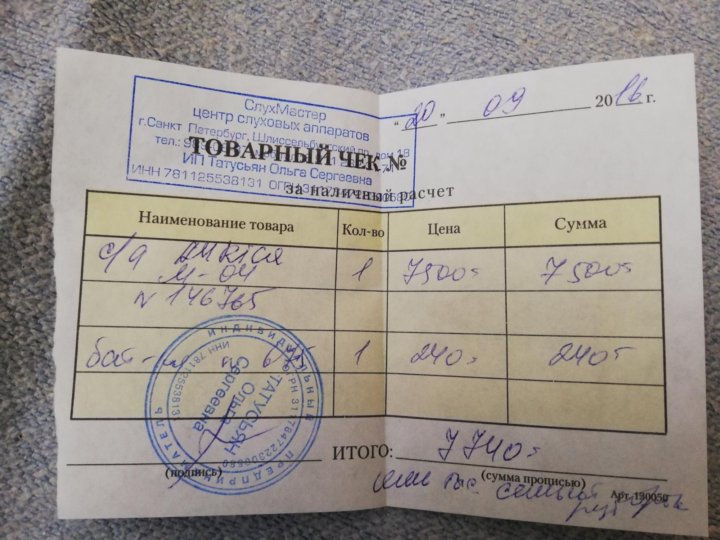 СлухМастер
центр слуховых аппаратов
г.Санкт Петербург, Шлиссельбургский пр. дом 18
тел.:
"20" 09 2016 г.
ТОВАРНЫЙ ЧЕК №
ИП Татусьян Ольга Сергеевна
ИНН 781125538131 ОГРН
за наличный расчет
Наименование товара Кол-во Цена Сумма
с/а М-04 1 7500- 7500-
N 146765
бат- 1 240- 240-
ИНДИВИДУАЛЬНЫЙ ПРЕДПРИНИМАТЕЛЬ
ИНН 781125538131
ТАТУСЬЯН
Ольга
Сергеевна
ИТОГО: 7740-
(подпись) (сумма прописью)
семь тыс семьсот
Арт. 130050